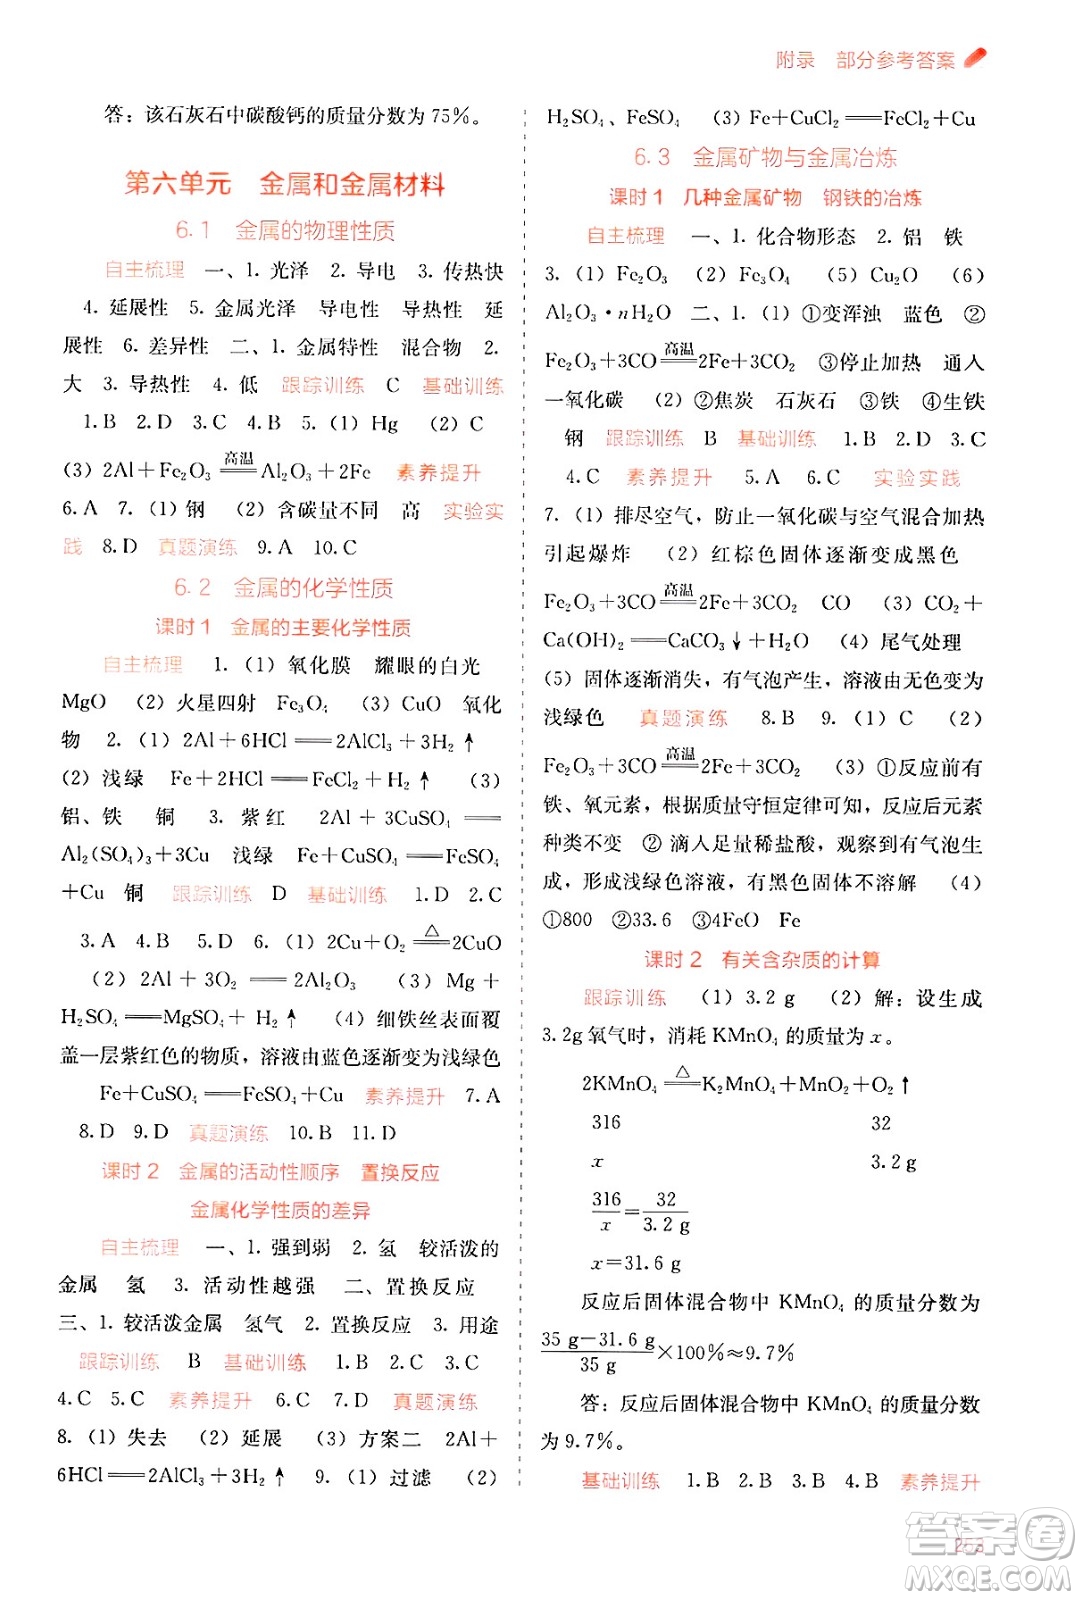 附录　部分参考答案
答：该石灰石中碳酸钙的质量分数为 75％。
第六单元　金属和金属材料
6.1　金属的物理性质
自主梳理　一、1. 光泽　2. 导电　3. 传热快
4. 延展性　5. 金属光泽　导电性　导热性　延
展性　6. 差异性　二、1. 金属特性　混合物　2.
大　3. 导热性　4. 低　跟踪训练　C　基础训练
1. B　2. D　3. C　4. C　5. （1）Hg　（2）C
（3）2Al＋Fe₂O₃ 高温══ Al₂O₃＋2Fe　素养提升
6. A　7. （1）钢　（2）含碳量不同　高　实验实
践　8. D　真题演练　9. A　10. C
6.2　金属的化学性质
课时 1　金属的主要化学性质
自主梳理　1. （1）氧化膜　耀眼的白光
MgO　（2）火星四射　Fe₃O₄　（3）CuO　氧化
物　2. （1）2Al＋6HCl══2AlCl₃＋3H₂↑
（2）浅绿　Fe＋2HCl══FeCl₂＋H₂↑　（3）
铝、铁　铜　3. 紫红　2Al＋3CuSO₄══
Al₂(SO₄)₃＋3Cu　浅绿　Fe＋CuSO₄══FeSO₄
＋Cu　铜　跟踪训练　D　基础训练　1. D　2. C
3. A　4. B　5. D　6. （1）2Cu＋O₂ △══ 2CuO
（2）2Al＋3CuO══Al₂O₃＋3Cu　（3）Mg＋
H₂SO₄══MgSO₄＋H₂↑　（4）细铁丝表面覆
盖一层紫红色的物质，溶液由蓝色逐渐变为浅绿色
Fe＋CuSO₄══FeSO₄＋Cu　素养提升　7. A
8. D　9. D　真题演练　10. B　11. D
课时 2　金属的活动性顺序　置换反应
金属化学性质的差异
自主梳理　一、1. 强到弱　2. 氢　较活泼的
金属　氢　3. 活动性越强　二、置换反应
三、1. 较活泼金属　氢气　2. 置换反应　3. 用途
跟踪训练　B　基础训练　1. B　2. C　3. C
4. C　5. C　素养提升　6. C　7. D　真题演练
8. （1）失去　（2）延展　（3）方案二　2Al＋
6HCl══2AlCl₃＋3H₂↑　9. （1）过滤　（2）
H₂SO₄、FeSO₄　（3）Fe＋CuCl₂══FeCl₂＋Cu
6.3　金属矿物与金属冶炼
课时 1　几种金属矿物　钢铁的冶炼
自主梳理　一、1. 化合物形态　2. 铝　铁
3. （1）Fe₂O₃　（2）Fe₃O₄　（5）Cu₂O　（6）
Al₂O₃·nH₂O　二、1. （1）①变浑浊　蓝色　②
Fe₂O₃＋3CO 高温══ 2Fe＋3CO₂　③停止加热　通入
一氧化碳　（2）②焦炭　石灰石　③铁　④生铁
钢　跟踪训练　B　基础训练　1. B　2. D　3. C
4. C　素养提升　5. A　6. C　实验实践
7. （1）排尽空气，防止一氧化碳与空气混合加热
引起爆炸　（2）红棕色固体逐渐变成黑色
Fe₂O₃＋3CO 高温══ 2Fe＋3CO₂　CO　（3）CO₂＋
Ca(OH)₂══CaCO₃↓＋H₂O　（4）尾气处理
（5）固体逐渐消失，有气泡产生，溶液由无色变为
浅绿色　真题演练　8. B　9. （1）C　（2）
Fe₂O₃＋3CO 高温══ 2Fe＋3CO₂　（3）①反应前有
铁、氧元素，根据质量守恒定律可知，反应后元素
种类不变　②滴入足量稀盐酸，观察到有气泡生
成，形成浅绿色溶液，有黑色固体不溶解　（4）
①800　②33.6　③4FeO　Fe
课时 2　有关含杂质的计算
跟踪训练　（1）3.2 g　（2）解：设生成
3.2g 氧气时，消耗 KMnO₄ 的质量为 x。
2KMnO₄ △══ K₂MnO₄＋MnO₂＋O₂↑
316　32
x　3.2 g
316/x＝32/3.2 g
x＝31.6 g
反应后固体混合物中 KMnO₄ 的质量分数为
(35 g－31.6 g)/35 g×100％≈9.7％
答：反应后固体混合物中 KMnO₄ 的质量分数
为 9.7％。
基础训练　1. B　2. B　3. B　4. B　素养提升
答案圈
MXQE.COM